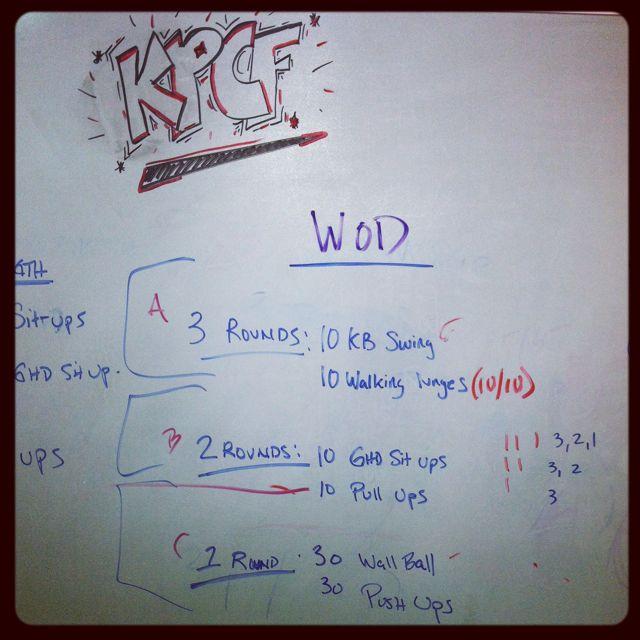 KPCF
WOD
ATH
Sit Ups
GHD Sit up.
UPS
A 3 ROUNDS: 10 KB Swing
10 Walking lunges (10/10)
B 2 ROUNDS: 10 GHD Sit ups
10 Pull Ups
C 1 ROUND 30 Wall Ball
30 Push Ups
3, 2, 1
3, 2
3